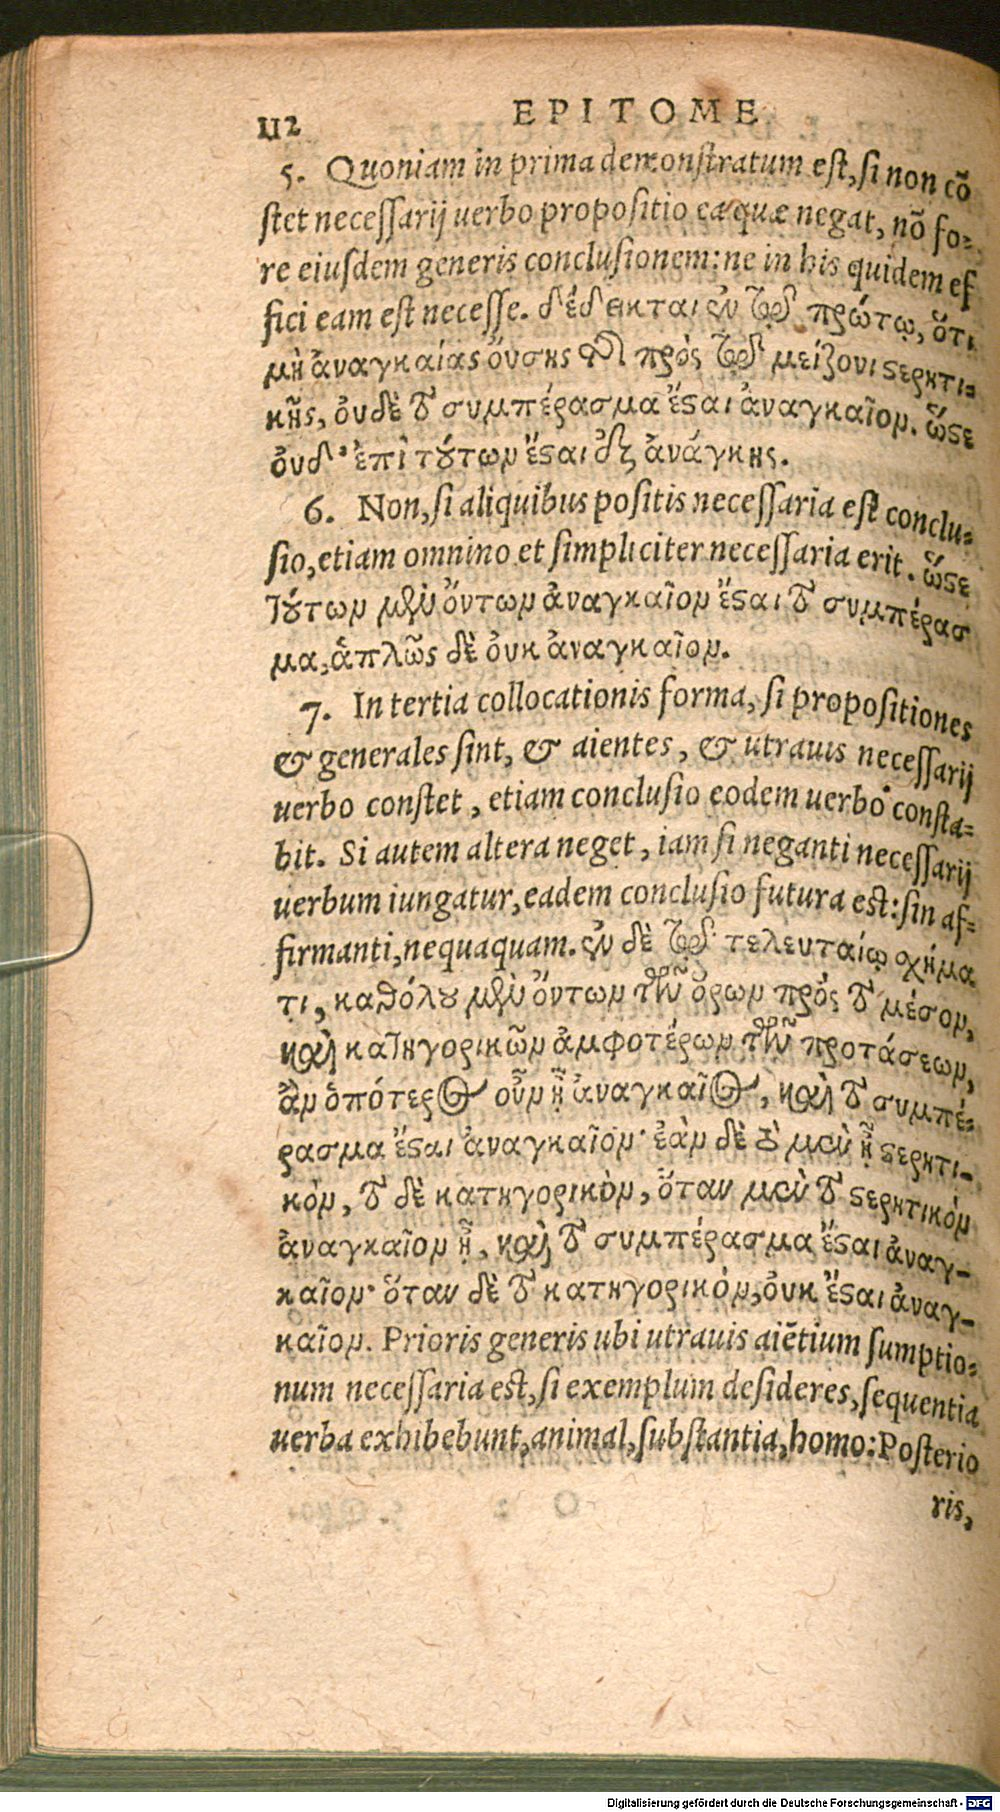 112 EPITOME
5. Quoniam in prima demonstratum est, si non cõ
stet necessarij uerbo propositio ea quæ negat, nõ fo-
re eiusdem generis conclusionem: ne in his quidem ef
fici eam est necesse. δέδεικται ἐν τῷ πρώτῳ, ὅτι
μὴ ἀναγκαίας ὄυσης τῆς πρὸς τῷ μείζονι στερητι-
κῆς, ὀυδὲ τὸ συμπέρασμα ἔσται ἀναγκαῖον. ὥστε
ὀυδ' ἐπὶ τούτων ἔσται ἐξ ἀνάγκης.
6. Non, si aliquibus positis necessaria est conclu-
sio, etiam omnino et simpliciter necessaria erit. ὥστε
τούτων μὲν ὄντων ἀναγκαῖον ἔσται τὸ συμπέρασ
μα, ἁπλῶς δὲ ὀυκ ἀναγκαῖον.
7. In tertia collocationis forma, si propositiones
& generales sint, & aientes, & utrauis necessarij
uerbo constet, etiam conclusio eodem uerbo consta-
bit. Si autem altera neget, iam si neganti necessarij
uerbum iungatur, eadem conclusio futura est: sin af-
firmanti, nequaquam. ἐν δὲ τῷ τελευταίῳ σχήμα
τι, καθόλου μὲν ὄντων τῶν ὅρων πρὸς τὸ μέσον,
καὶ κατηγορικῶν ἀμφοτέρων τῶν προτάσεων,
ἂν ὁπότερος οὖν ᾖ ἀναγκαῖος, καὶ τὸ συμπέ-
ρασμα ἔσται ἀναγκαῖον· ἐὰν δὲ τὸ μὲν ᾖ στερητι-
κὸν, τὸ δὲ κατηγορικὸν, ὅταν μὲν τὸ στερητικὸν
ἀναγκαῖον ᾖ, καὶ τὸ συμπέρασμα ἔσται ἀναγ-
καῖον· ὅταν δὲ τὸ κατηγορικὸν, ὀυκ ἔσται ἀναγ-
καῖον. Prioris generis ubi utrauis aiẽtium sumptio-
num necessaria est, si exemplum desideres, sequentia
uerba exhibebunt, animal, substantia, homo: Posterio
ris,
Digitalisierung gefördert durch die Deutsche Forschungsgemeinschaft - DFG